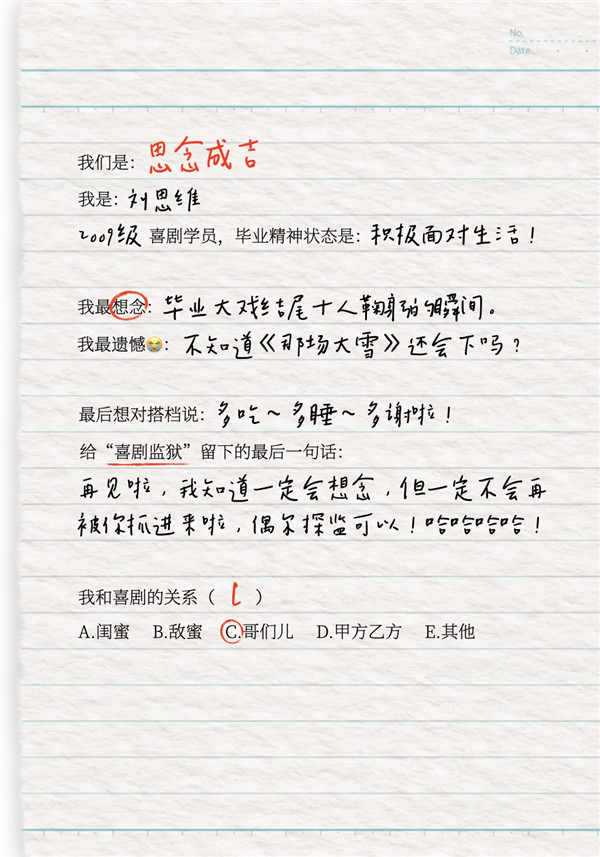 No.
Date
我们是：思念成吉
我是：刘思维
2009级 喜剧学员，毕业精神状态是：积极面对生活！
我最想念：毕业大戏结尾十人鞠躬的瞬间。
我最遗憾😭：不知道《那场大雪》还会下吗？
最后想对搭档说：多吃～多睡～多谢啦！
给“喜剧监狱”留下的最后一句话：
再见啦，我知道一定会想念，但一定不会再
被你抓进来啦，偶尔探监可以！哈哈哈哈！
我和喜剧的关系（ C ）
A.闺蜜 B.敌蜜 C.哥们儿 D.甲方乙方 E.其他